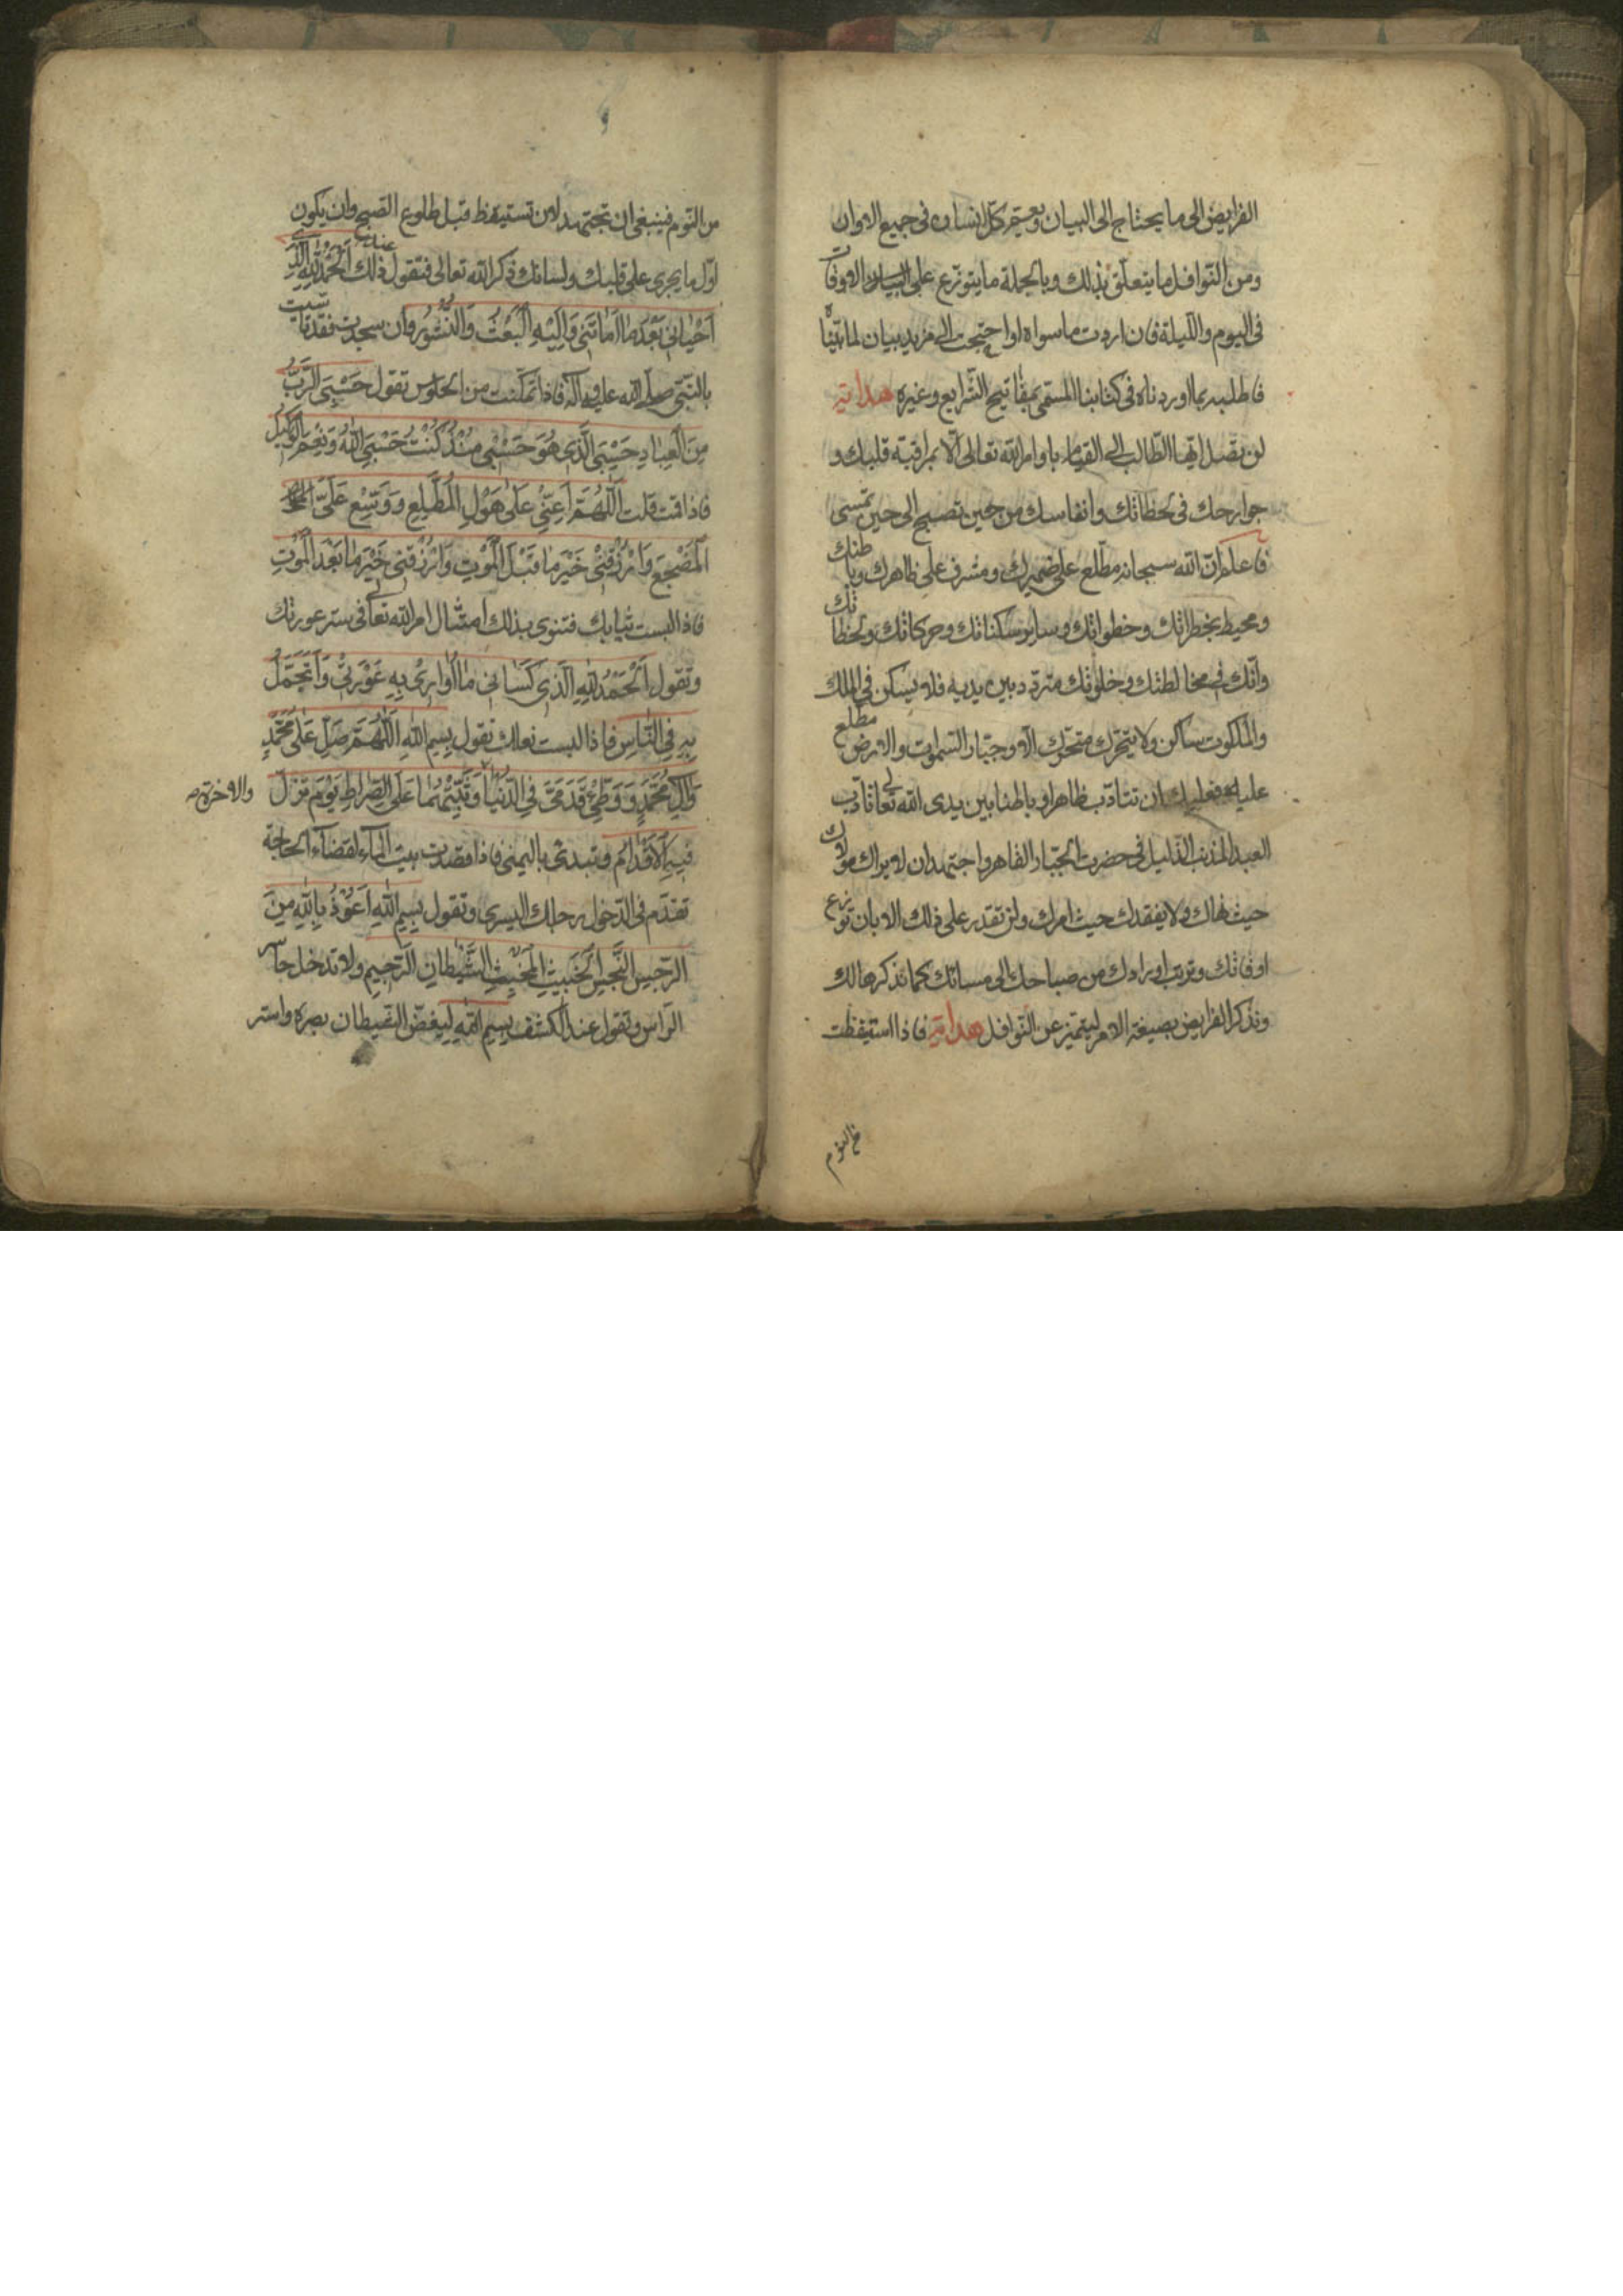 الفرايض الى ما يحتاج الى البيان ويعم كل انسان فى جميع الاوان
ومن النوافل ما يتعلق بذلك وبالجملة ما يتوزع على الاوقات
فى اليوم والليلة فان اردت ما سواه او احتجت الى مزيد بيان لما بيّناه
فاطلبه مما اوردناه فى كتابنا المسمى بمفاتيح الشرايع وغيره هداية
لن تصل ايها الطالب الى القيام باوامر الله تعالى الّا بمراقبة قلبك و
جوارحك فى لحظاتك وانفاسك من حين تصبح الى حين تمسى
فاعلم انّ الله سبحانه مطّلع على ضميرك ومشرف على ظاهرك وباطنك
ومحيط بخطراتك وخطواتك وساير سكناتك وحركاتك ولحظاتك
وانّك فى مخالطتك وخلوتك متردد بين يديه فلا يسكن فى الملك
والملكوت ساكن ولا يتحرك متحرّك الّا وجبّار السموات والارض مطلع
عليه فعليك ان تتادّب ظاهرا وباطنا بين يدى الله تعالى تادّب
العبد المذنب الذّليل فى حضرت الجبّار القاهر واجتهد ان لا يراك مولاك
حيث نهاك ولا يفقدك حيث امرك ولن تقدر على ذلك الا بان توزع
اوقاتك وترتب اورادك من صباحك الى مسائك كما نذكرها لك
ونذكر الفرايض بصيغة الامر ليتميّز عن النّوافل هداية فاذا استيقظت
من النوم
من النّوم فينبغى ان تجتهد لان تستيقظ قبل طلوع الصبح وان يكون
اوّل ما يجرى على قلبك ولسانك ذكر الله تعالى فتقول عند ذلك اَلْحَمْدُ لِلّٰهِ الَّذِى
اَحْيٰانِى بَعْدَ مٰا اَمٰاتَنِى وَاِلَيْهِ الْبَعْثُ وَالنُّشُورُ وان سجدت فقد تاسّيت
بالنّبىّ صلّى الله عليه وآله فاذا تمكّنت من الجلوس تقول حَسْبِىَ الرَّبُّ
مِنَ الْعِبٰادِ حَسْبِىَ الَّذِى هُوَ حَسْبِى مُنْذُ كُنْتُ حَسْبِىَ اللّٰهُ وَنِعْمَ الْوَكِيلُ
فاذا قمت قلت اَللّٰهُمَّ اَعِنِّى عَلٰى هَوْلِ الْمُطَّلَعِ وَوَسِّعْ عَلَىَّ
الْمَضْجَعَ وَارْزُقْنِى خَيْرَ مٰا قَبْلَ الْمَوْتِ وَارْزُقْنِى خَيْرَ مٰا بَعْدَ الْمَوْتِ
فاذا لبست ثيابك فتنوى بذلك امتثال امر الله تعالى فى ستر عورتك
وتقول اَلْحَمْدُ لِلّٰهِ الَّذِى كَسٰانِى مٰا اُوٰارِى بِهِ عَوْرَتِى وَاَتَجَمَّلُ
بِهِ فِى النّٰاسِ فاذا لبست نعلك تقول بِسْمِ اللّٰهِ اَللّٰهُمَّ صَلِّ عَلٰى مُحَمَّدٍ
وَاٰلِ مُحَمَّدٍ وَوَطِّئْ قَدَمَىَّ فِى الدُّنْيٰا وَثَبِّتْهُمٰا عَلَى الصِّرٰاطِ يَوْمَ تَزِلُّ
والاخرة صح
فِيهِ الْاَقْدٰامُ وتبدئ باليمنى فاذا قصدت بيت الماء لقضاء الحاجة
تقدّم فى الدّخول رجلك اليسرى وتقول بِسْمِ اللّٰهِ اَعُوْذُ بِاللّٰهِ مِنَ
الرِّجْسِ النَّجِسِ الْخَبِيثِ الْمُخْبِثِ الشَّيْطٰانِ الرَّجِيمِ ولا تدخل حاسر
الرّاس وتقول عند الكشف بِسْمِ اللّٰهِ ليغضّ الشيطان بصره واستر